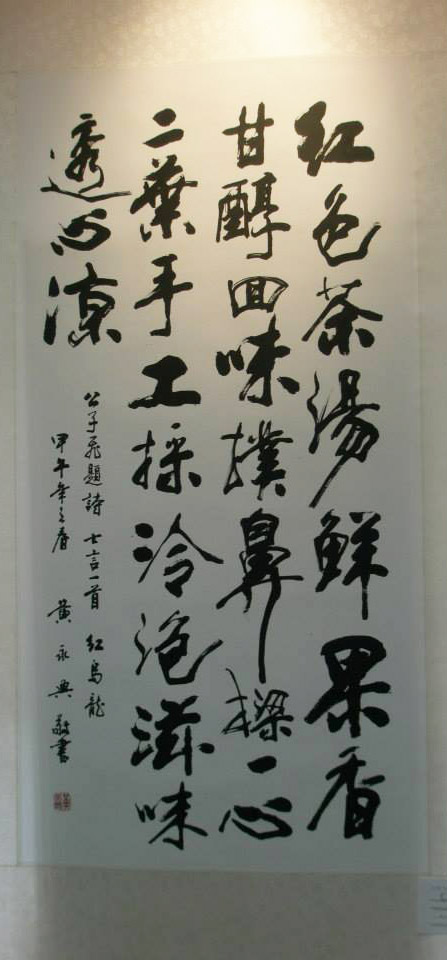 紅色茶湯鮮果香
甘醇回味撲鼻樑一心
二葉手工採冷泡滋味
透心涼
公子飛題詩 七言一首 紅烏龍
甲午年之春 黃永典敬書